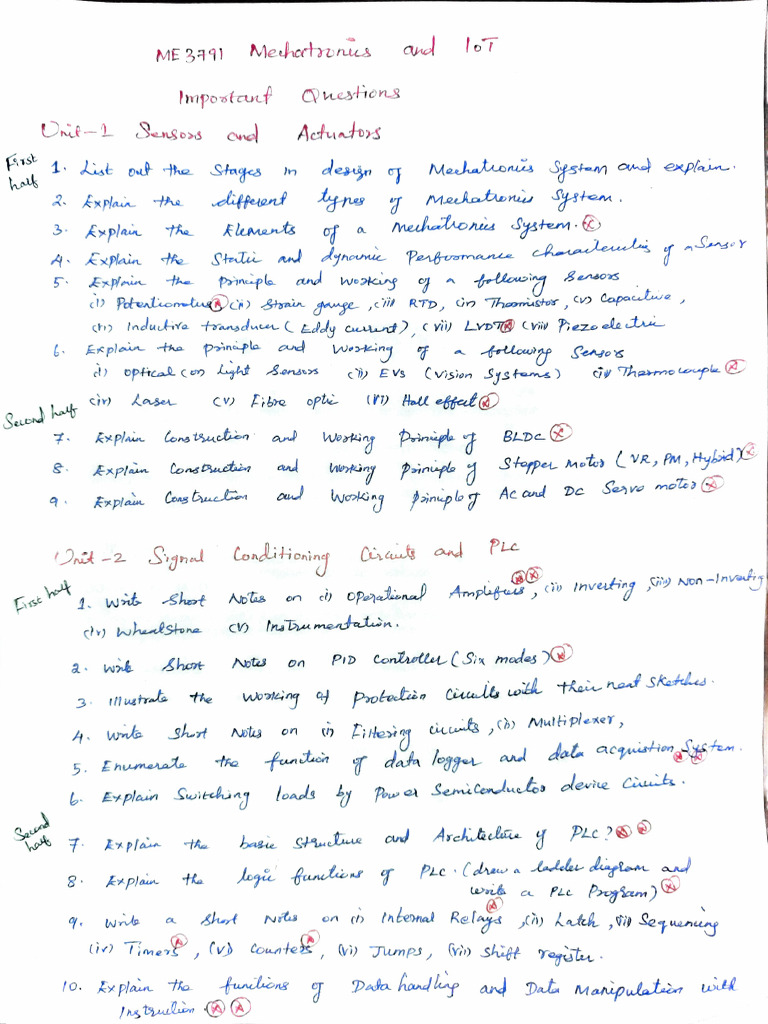 ME3791 Mechatronics and IoT
Important Questions
Unit-1 Sensors and Actuators
First half
1. List out the Stages in design of Mechatronics System and explain.
2. Explain the different types of Mechatronics System.
3. Explain the Elements of a Mechatronics System.
4. Explain the Static and dynamic Performance characteristics of a Sensor
5. Explain the principle and working of a following Sensors
(i) Potentiometer (ii) Strain gauge, (iii) RTD, (iv) Thermistor, (v) Capacitive,
(vi) Inductive transducer (Eddy current), (vii) LVDT (viii) Piezoelectric
6. Explain the principle and working of a following Sensors
(i) optical (or) Light Sensors (ii) EVs (Vision Systems) (iii) Thermocouple
(iv) Laser (v) Fibre optic (vi) Hall effect
Second half
7. Explain Construction and Working Principle of BLDC
8. Explain Construction and Working principle of Stepper Motor (VR, PM, Hybrid)
9. Explain Construction and Working principle of Ac and DC Servo motor
Unit-2 Signal Conditioning Circuits and PLC
First half
1. Write Short Notes on (i) Operational Amplifiers, (ii) Inverting, (iii) Non-Inverting
(iv) Wheatstone (v) Instrumentation.
2. Write Short Notes on PID Controller (Six modes)
3. Illustrate the Working of Protection Circuits with their neat sketches.
4. Write Short Notes on (i) Filtering circuits, (ii) Multiplexer,
5. Enumerate the function of data logger and data acquistion System.
6. Explain Switching loads by Power Semiconductor device Circuits.
Second half
7. Explain the basic structure and Architecture of PLC?
8. Explain the logic functions of PLC. (draw a ladder diagram and
write a PLC Program)
9. Write a Short Notes on (i) Internal Relays, (ii) Latch, (iii) Sequencing
(iv) Timers, (v) Counters, (vi) Jumps, (vii) Shift register.
10. Explain the functions of Data handling and Data Manipulation with
Instruction.